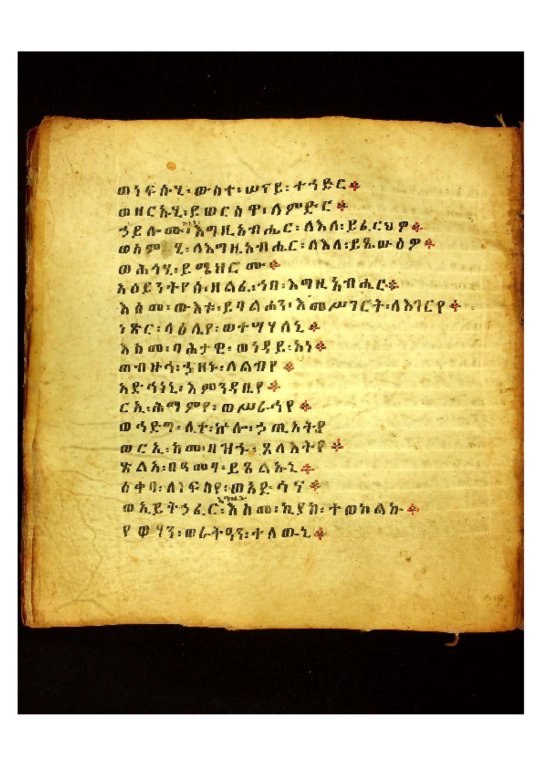 ወነፍሱሂ፡ ውስተ፡ ሠናይ፡ ተኀድር ።
ወዘርኡሂ፡ ይወርስዋ፡ ለምድር ።
ኃይሎሙ፡ እግዚአብሔር፡ ለእለ፡ ይፈርህዎ ።
ሂ፡ ለእግዚአብሔር፡ ለእለ፡ ይጼውዕዎ ።
ወሕጎሂ፡ ይሜህሮሙ ።
አዕይንትየሰ፡ ዘልፈ፡ ኀበ፡ እግዚአብሔር ።
እስመ፡ ውእቱ፡ ይባልሐን፡ እመሥገርት፡ ለእገርየ ።
ነጽር፡ ላዕሌየ፡ ወተሣሃለኒ ።
እስመ፡ ባሕታዊ፡ ወነዳይ፡ አነ ።
ወብዙኅ፡ ኃዘኑ፡ ለልብየ ።
አድኅነኒ፡ እምንዳቤየ ።
ርኢ፡ ሕማምየ፡ ወሥራሕየ ።
ወኅድግ፡ ሊተ፡ ኵሎ፡ ኃጢአትየ
ወርኢ፡ ከመ፡ በዝኁ፡ ጸላእትየ ።
ጽልአ፡ በዓመፃ፡ ይጸልኡኒ ።
ዕቀባ፡ ለነፍስየ፡ ወአድኅና ።
ወኢይትኃፈር፡ እስመ፡ ኪያከ፡ ተወከልኩ ።
የዋሃን፡ ወራትዓን፡ ተለውኒ ።